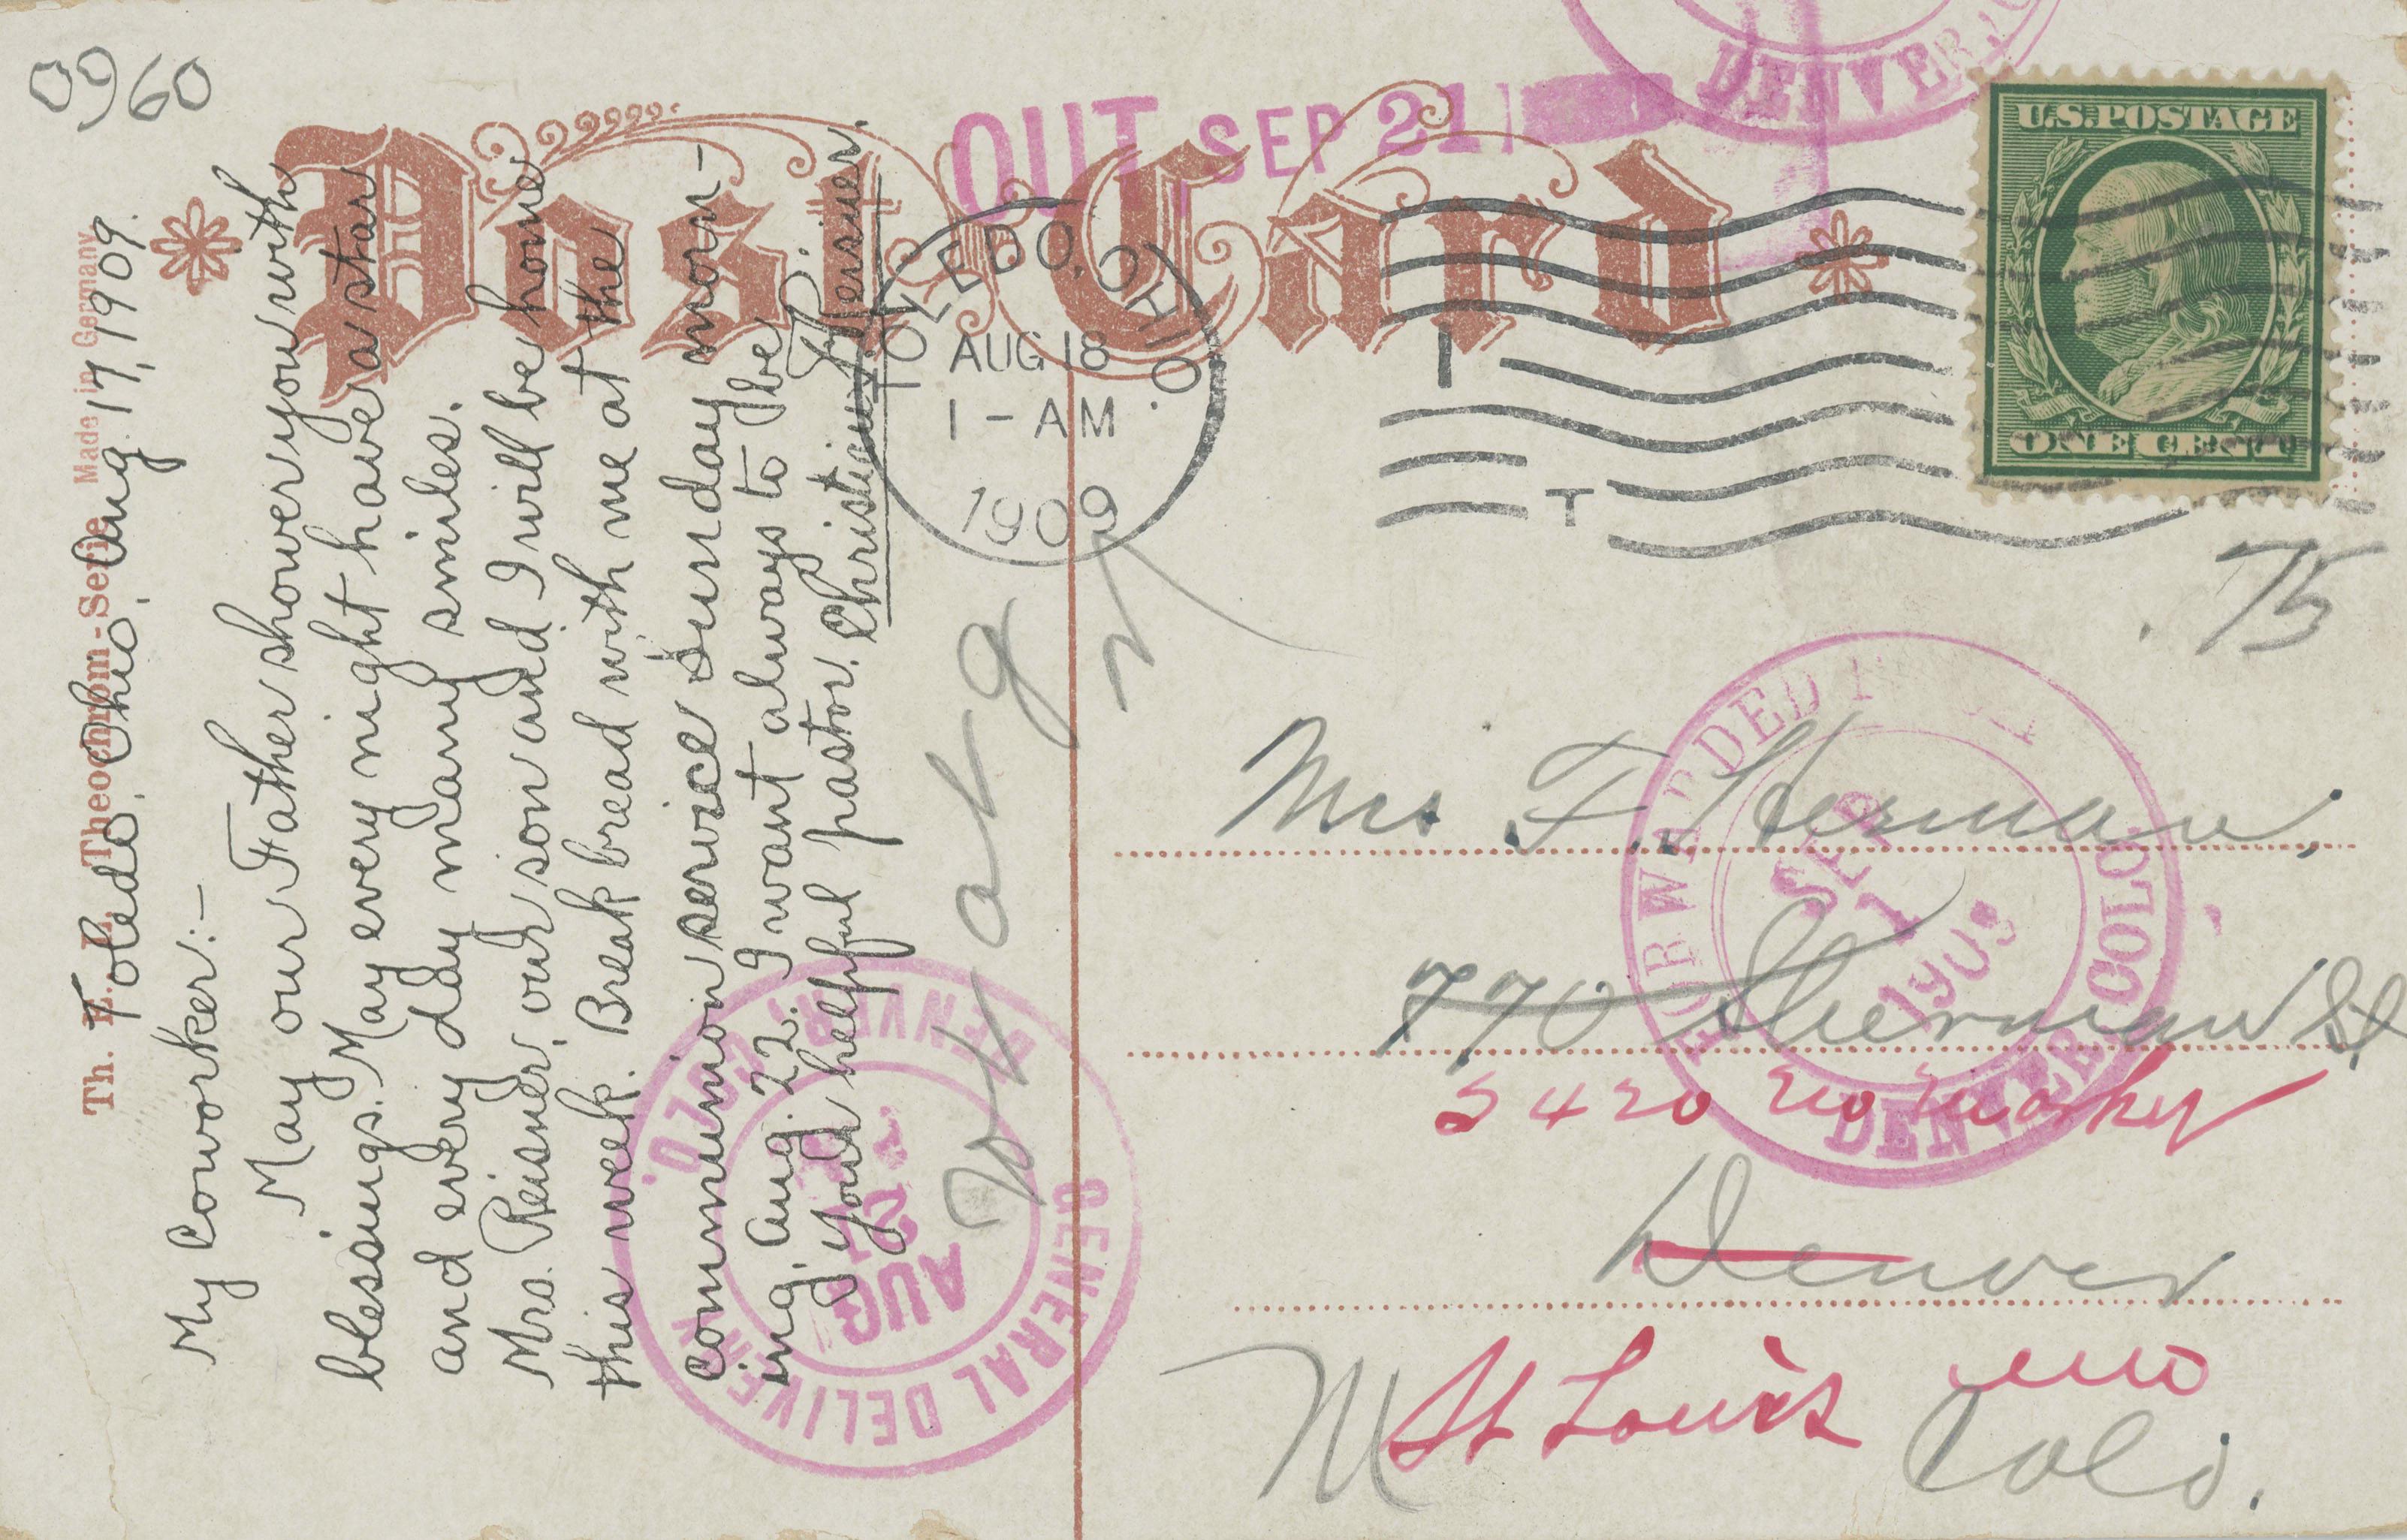 0960
Post Card
Th. E. L. Theochrom-Serie Made in Germany
Toledo, Ohio, Aug. 17, 1909.
My Coworker:-
May our Father shower you with
blessings. May every night have a star
and every day many smiles.
Mrs. Reisner, our son and I will be home
this week. Break bread with me at the
communion service Sunday morn-
ing, Aug. 22. I want always to be
your helpful pastor. Christian F. Reisner.
OUT SEP 21
DENVER,
TOLEDO, OHIO.
AUG 18
1-AM
1909
1
T
U.S. POSTAGE
ONE CENT
75
Mrs. F. Herman,
770 Sherman St.
2420
Denver
St Louis mo
Colo.
FORWARDED
SEP
1
1909
DENVER COLO.
GENERAL DELIVERY
AUG
DENVER, COLO.